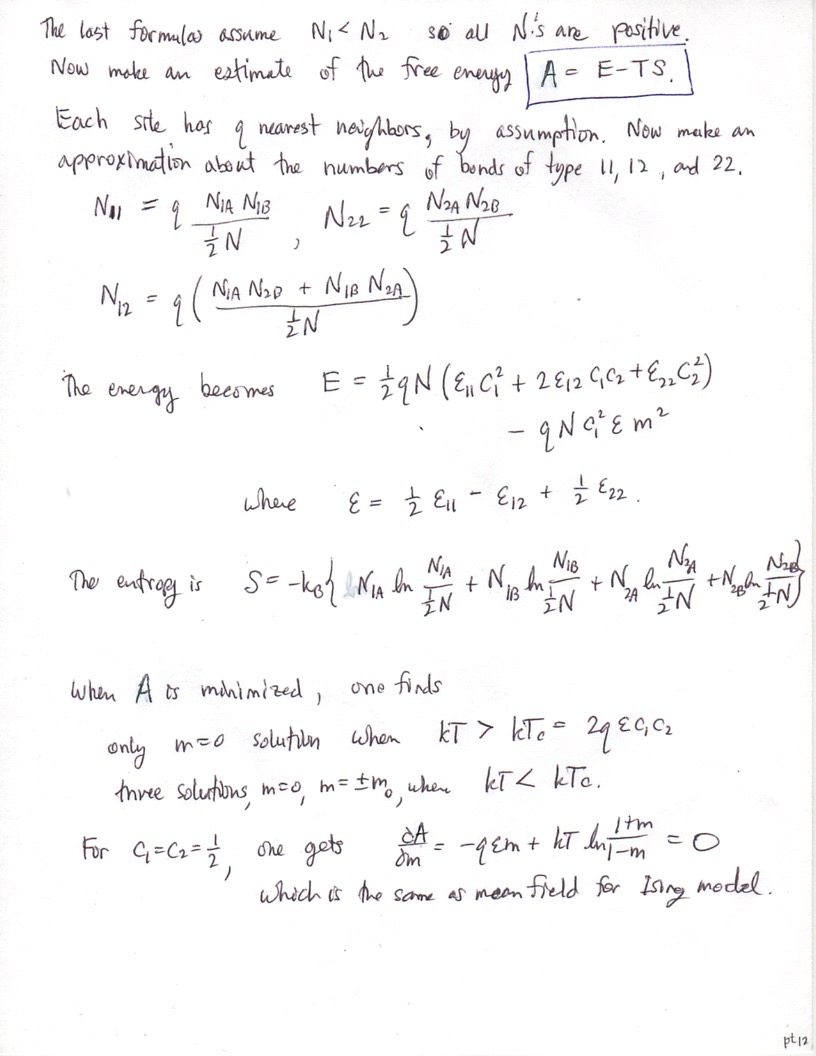 The last formulas assume N₁ < N₂ so all N's are positive.
Now make an estimate of the free energy A = E-TS.
Each site has q nearest neighbors, by assumption. Now make an
approximation about the numbers of bonds of type 11, 12, and 22.
N₁₁ = q N₁A N₁B / ½N , N₂₂ = q N₂A N₂B / ½N
N₁₂ = q ( N₁A N₂B + N₁B N₂A / ½N )
The energy becomes E = ½qN (ε₁₁C₁² + 2ε₁₂C₁C₂ + ε₂₂C₂²)
- qNC₁²εm²
where ε = ½ε₁₁ - ε₁₂ + ½ε₂₂.
The entropy is S = -kB{ N₁A ln N₁A/½N + N₁B ln N₁B/½N + N₂A ln N₂A/½N + N₂B ln N₂B/½N }
When A is minimized, one finds
only m=0 solution when kT > kTc = 2qεC₁C₂
three solutions, m=0, m=±m₀, when kT < kTc.
For C₁=C₂=½, one gets ∂A/∂m = -qεm + kT ln 1+m/1-m = 0
which is the same as mean field for Ising model.
pt12